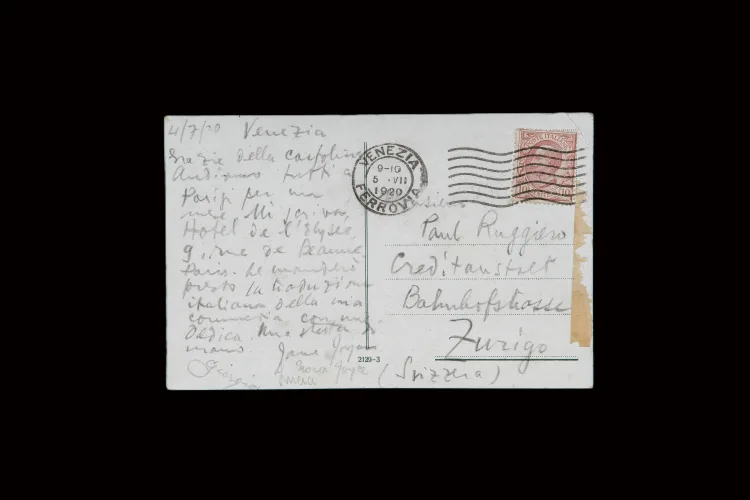 4/7/20 Venezia
Grazie della cartolina
Andiamo tutti a
Parigi per un
mese Mi scriva,
Hotel de l'Elysée
9, rue de Beaune
Paris. Le manderò
presto la traduzione
italiana della mia
commedia con una
dedica. Una stretta di
mano. James Joyce
Giorgio Nora Joyce
VENEZIA
9-10
5 · VII
1920
FERROVIA
POSTE ITALIANE
Paul Ruggiero
Creditanstalt
Bahnhofstrasse
Zurigo
(Svizzera)
2129-3